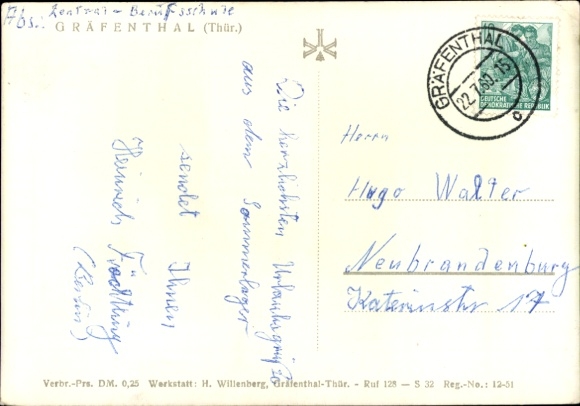 Abs.: Zentral-Berufsschule
GRÄFENTHAL (Thür.)
Die herzlichsten Urlaubsgrüße
aus dem Sommerlager
sendet Ihnen
Heinrich
(Berlin)
10
DEUTSCHE
DEMOKRATISCHE REPUBLIK
GRÄFENTHAL
22.7.60.-15
c
Herrn
Hugo Walter
Neubrandenburg
Katerinstr 17
Verbr.-Prs. DM. 0,25 Werkstatt: H. Willenberg, Gräfenthal-Thür. - Ruf 128 — S 32 Reg.-No.: 12-51